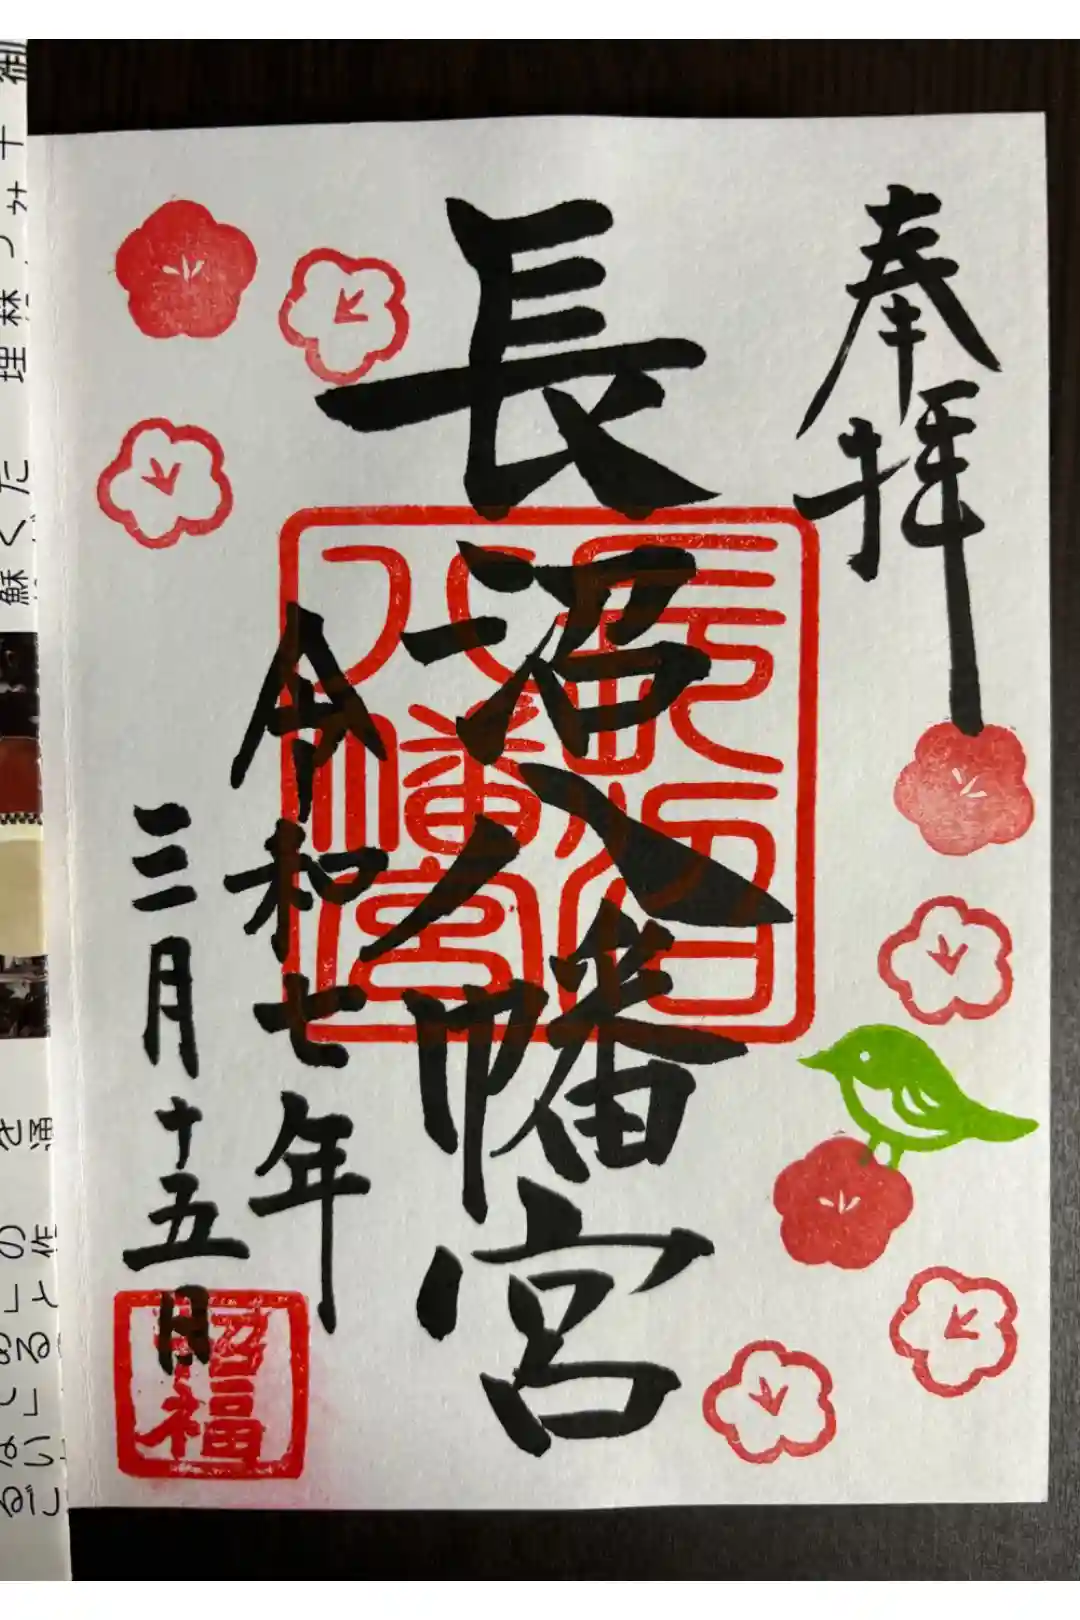 奉拝
長沼八幡宮
令和七年
三月十五日
長沼
八幡宮
招福